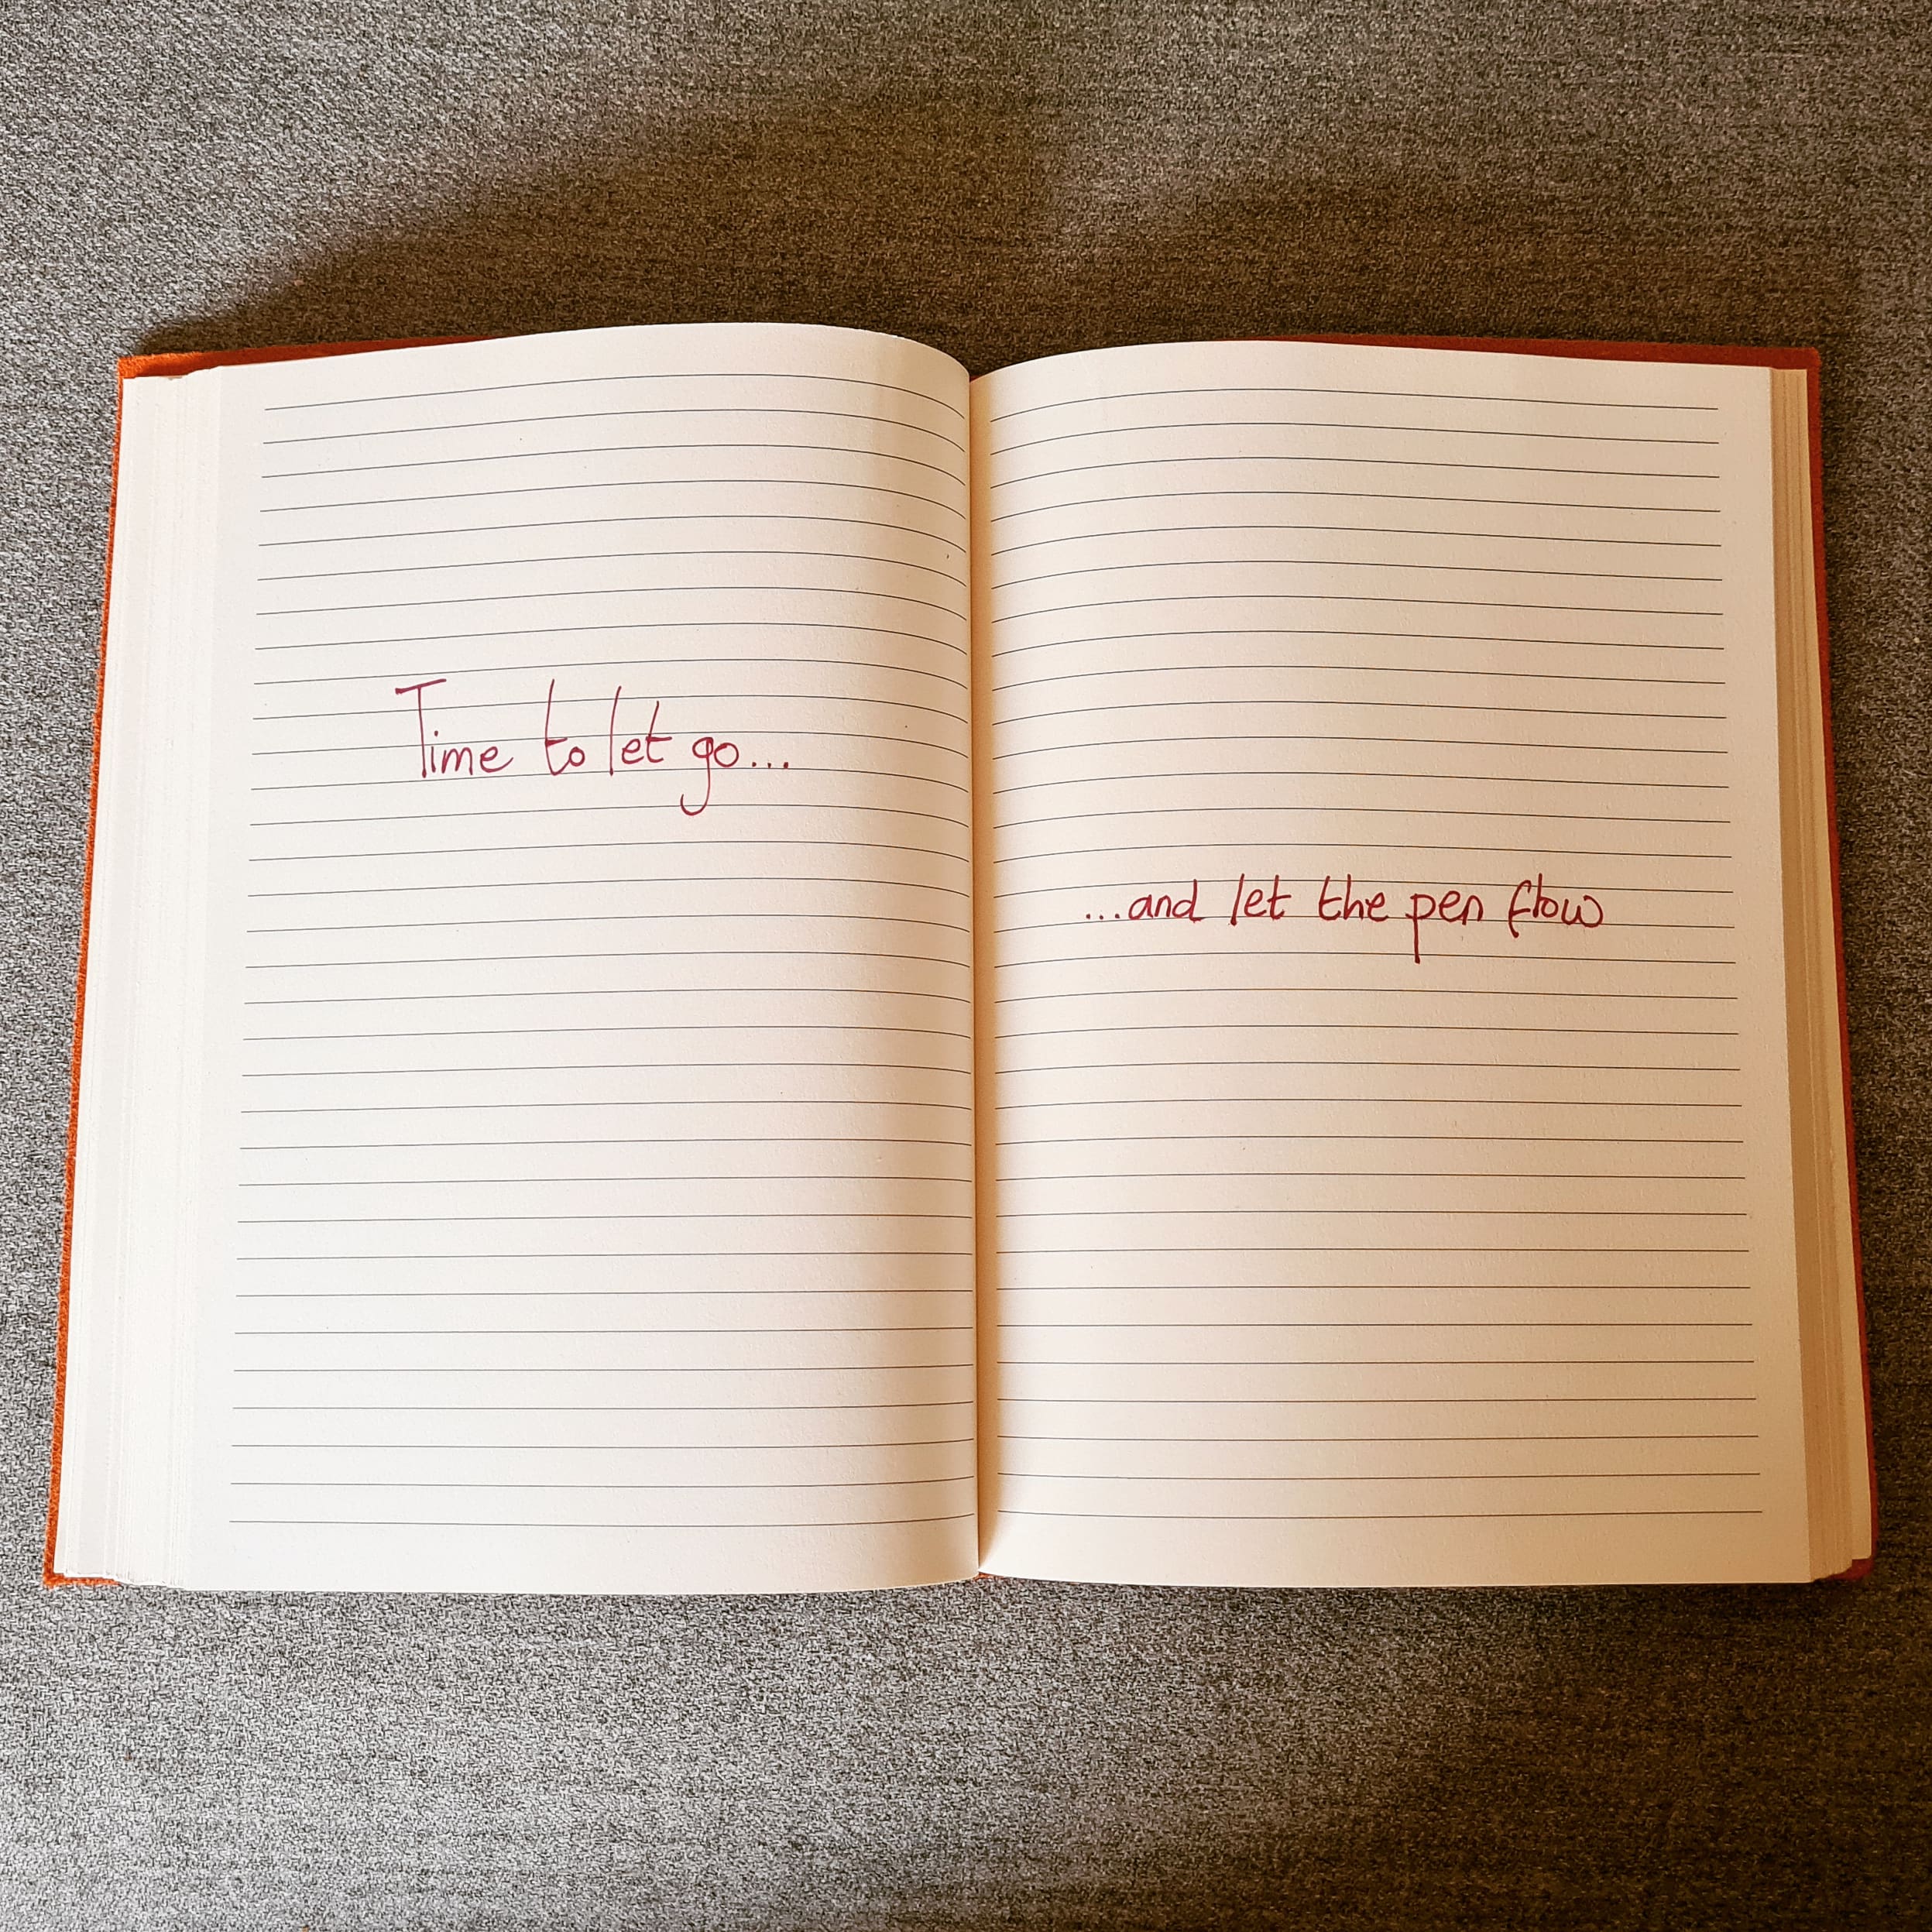 Time to let go...
...and let the pen flow